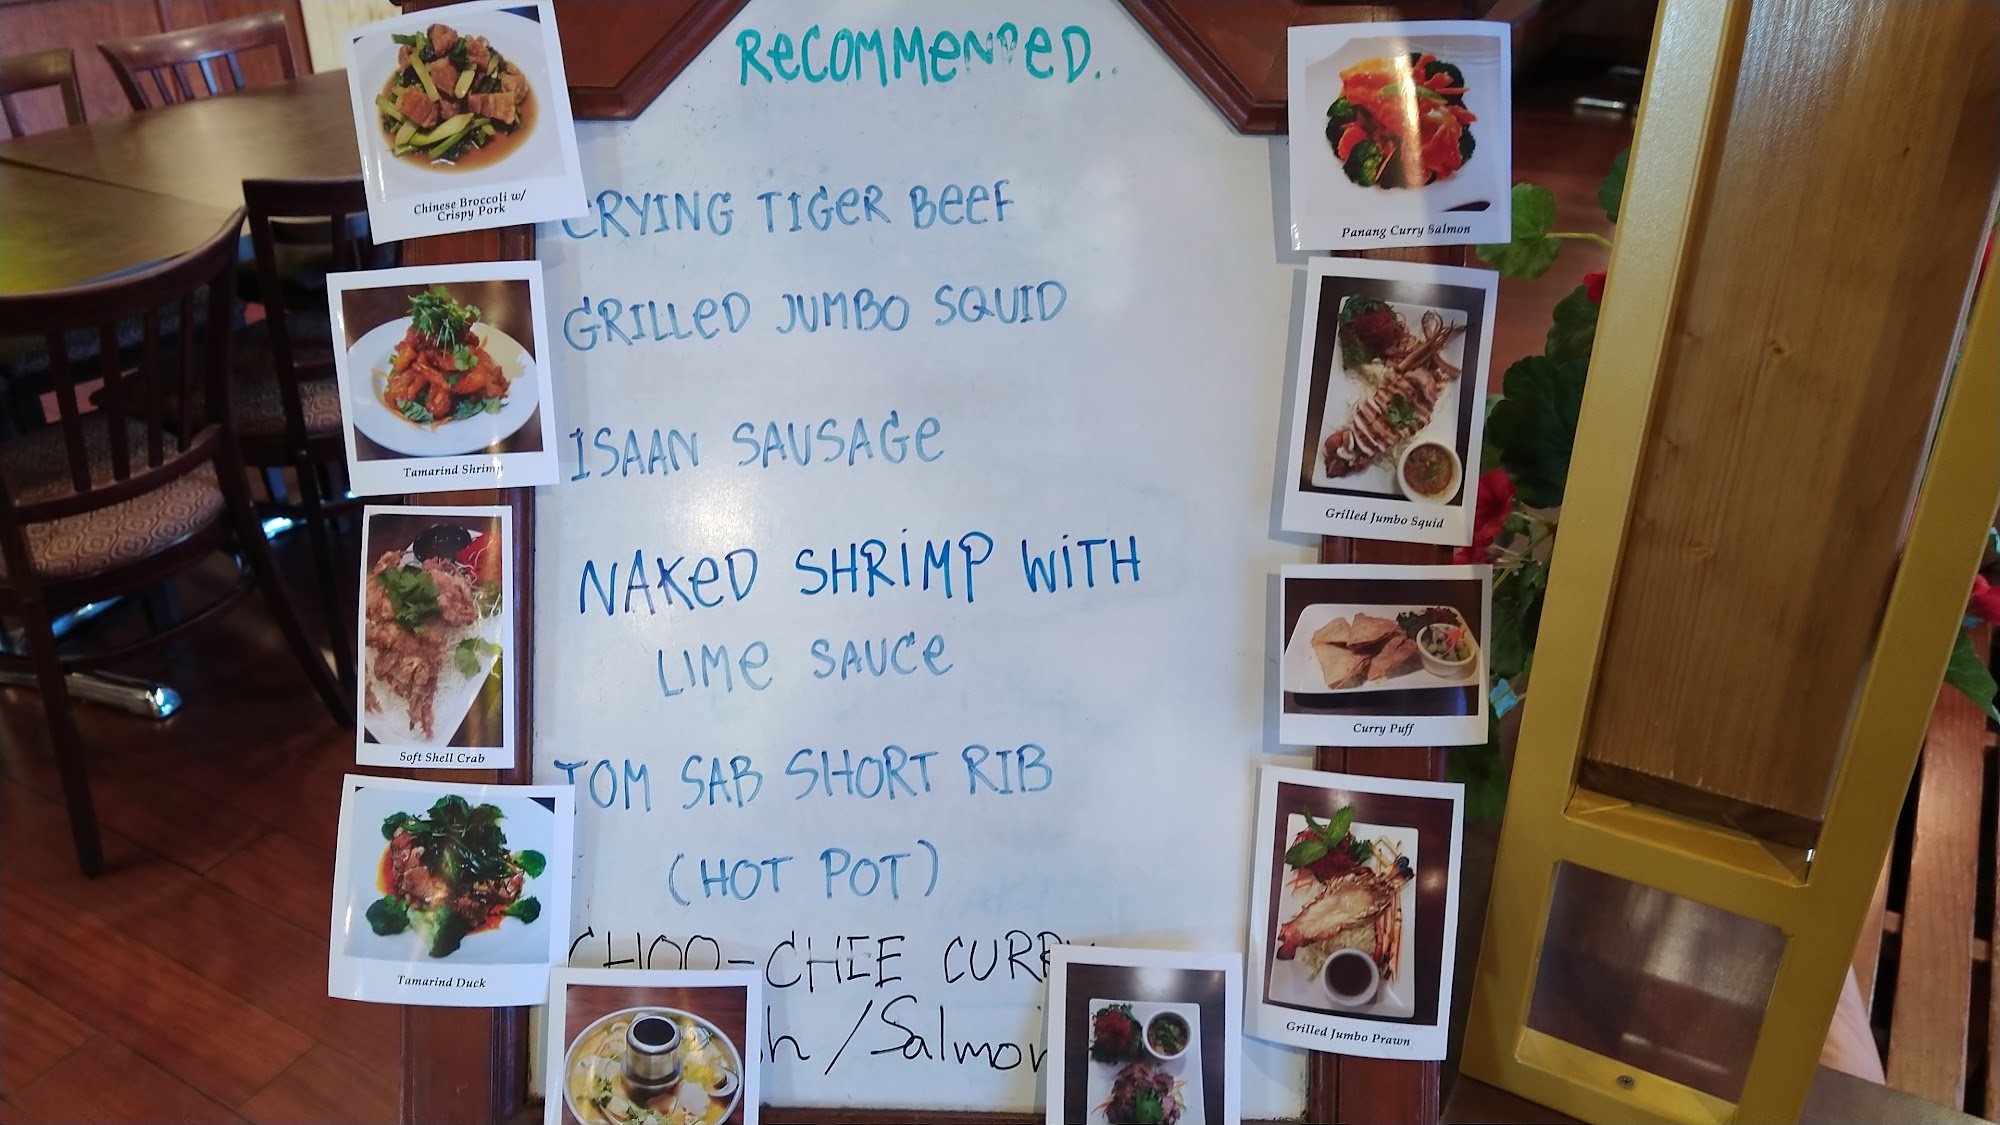 RECOMMENDED..
CRYING TIGER BEEF
GRILLED JUMBO SQUID
ISAAN SAUSAGE
NAKED SHRIMP WITH
LIME SAUCE
TOM SAB SHORT RIB
(HOT POT)
CHOO-CHEE CURRY
/Salmon
Chinese Broccoli w/
Crispy Pork
Tamarind Shrimp
Soft Shell Crab
Tamarind Duck
Panang Curry Salmon
Grilled Jumbo Squid
Curry Puff
Grilled Jumbo Prawn